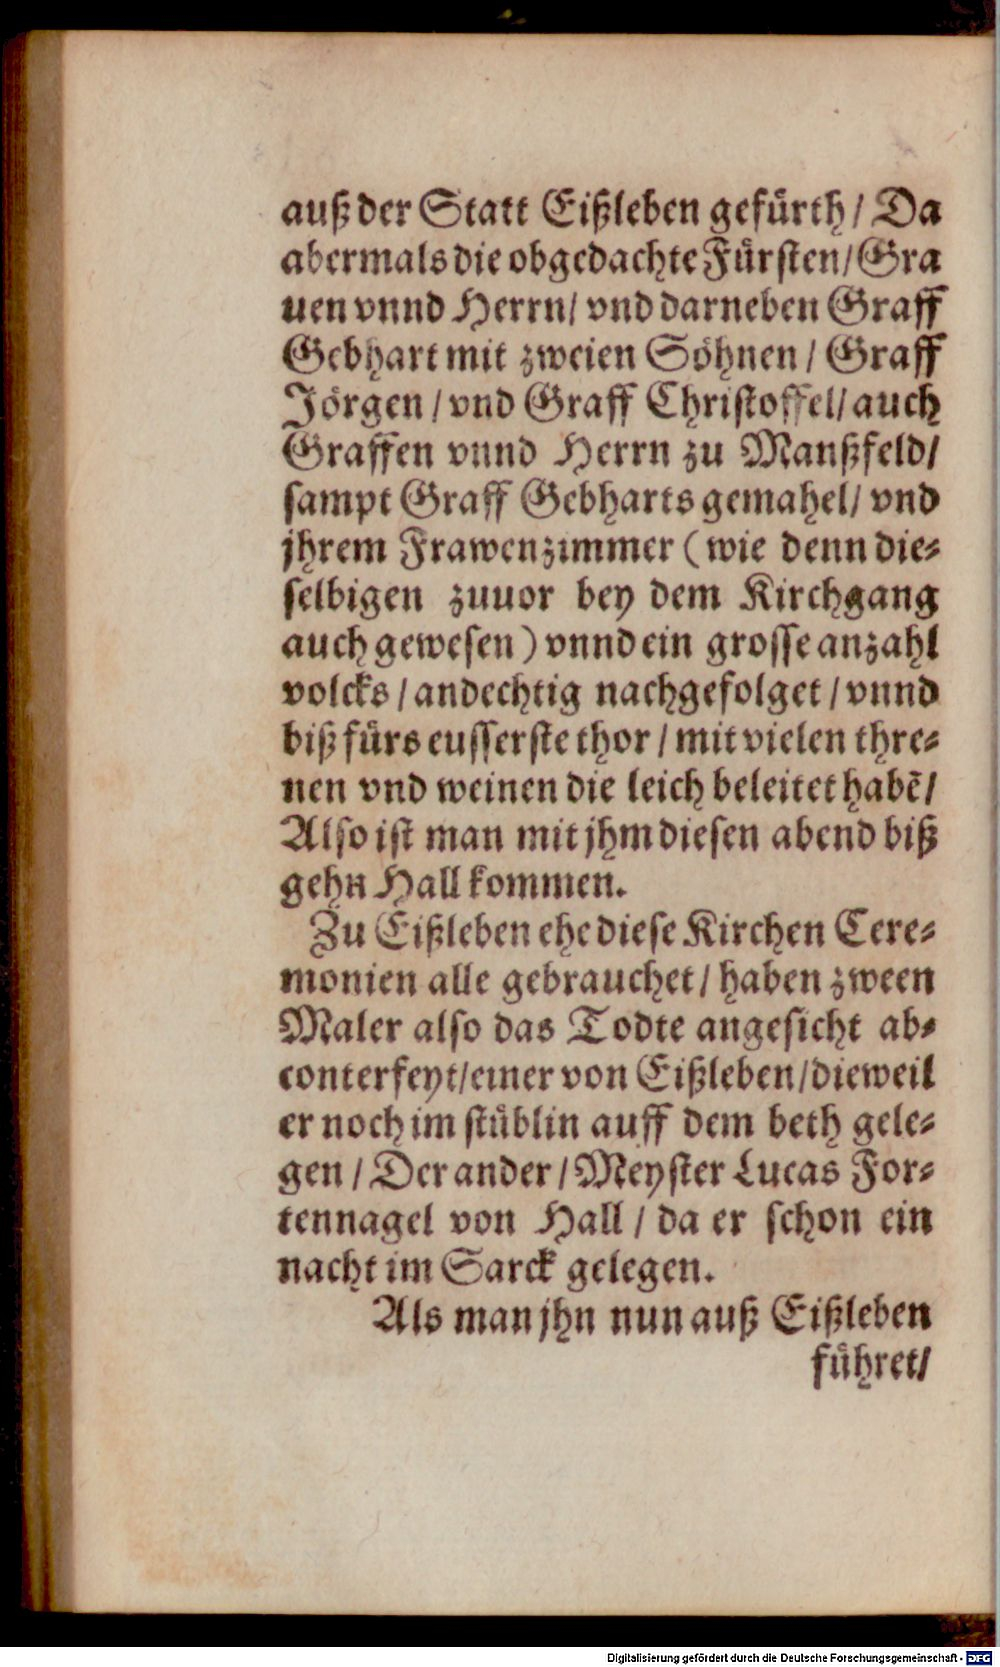 auß der Statt Eißleben gefürth / Da
abermals die obgedachte Fürsten / Gra
uen vnnd Herrn / vnd darneben Graff
Gebhart mit zweien Söhnen / Graff
Jörgen / vnd Graff Christoffel / auch
Graffen vnnd Herrn zu Manßfeld /
sampt Graff Gebharts gemahel / vnd
jhrem Frawenzimmer ( wie denn die-
selbigen zuuor bey dem Kirchgang
auch gewesen ) vnnd ein grosse anzahl
volcks / andechtig nachgefolget / vnnd
biß fürs eusserste thor / mit vielen thre-
nen vnd weinen die leich beleitet habẽ /
Also ist man mit jhm diesen abend biß
gehn Hall kommen.
Zu Eißleben ehe diese Kirchen Cere-
monien alle gebrauchet / haben zween
Maler also das Todte angesicht ab-
conterfeyt / einer von Eißleben / dieweil
er noch im stüblin auff dem beth gele-
gen / Der ander / Meyster Lucas For-
tennagel von Hall / da er schon ein
nacht im Sarck gelegen.
Als man jhn nun auß Eißleben
führet /
Digitalisierung gefördert durch die Deutsche Forschungsgemeinschaft - DFG